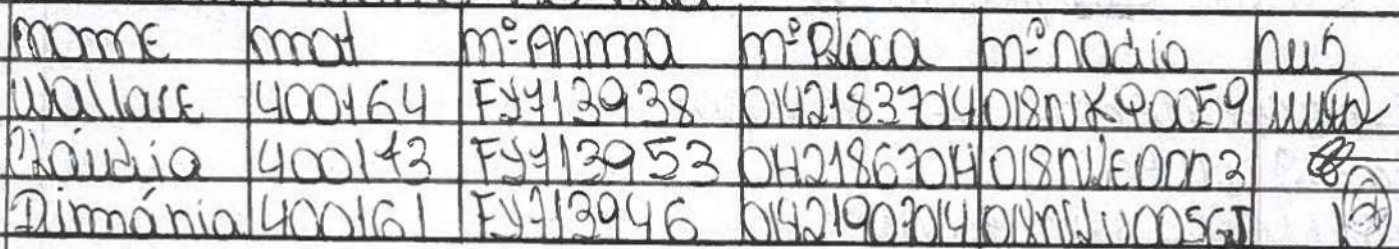 nome mat nº Arma nº Placa nº radio rub
Wallace 400164 FYY13938 0142183704 018NKQ0059
Cláudia 400173 FYY13953 0142186704
Dirmánia 400161 FYY13946 0142190704